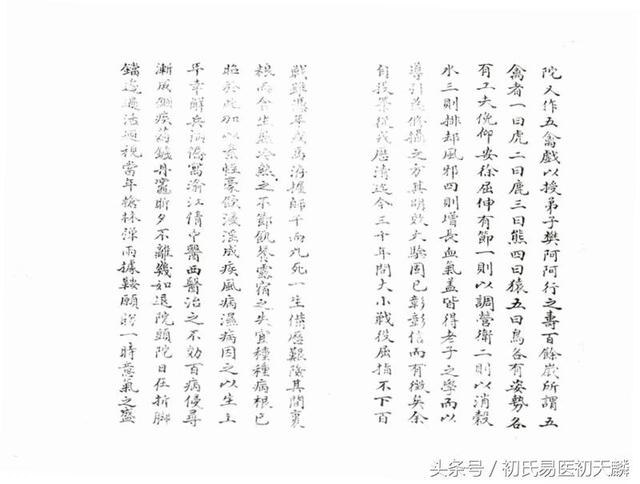 陀又作五禽戲以授弟子樊阿阿行之壽百餘歲所謂五
禽者一曰虎二曰鹿三曰熊四曰猿五曰鳥各有姿勢各
有工夫俛仰安徐屈伸有節一則以調營衛二則以消穀
水三則排却風邪四則增長血氣蓋皆得老子之學而以
導引為修攝之方其明效大驗固已彰彰信而有徵矣余
自投筆從戎歷清迄今三十年間大小戰役屈指不下百
戰雖馬握師干而九死一生備歷艱險其間裹
糧而食生熟冷熱之不節飢餐露宿之失宜種種病根已
胎於此加以素性豪飲浸淫成疾風病濕病因之以生上
年奉解兵滬寓渝江倩中醫西醫治之不効百病侵尋
漸成錮疾葯鑪丹竈夕不離幾如退院頭陀日在折脚
鐺邊過活迴視當年槍林彈雨據鞍顧盼一時意氣之盛
头条号／初氏易医初天麟